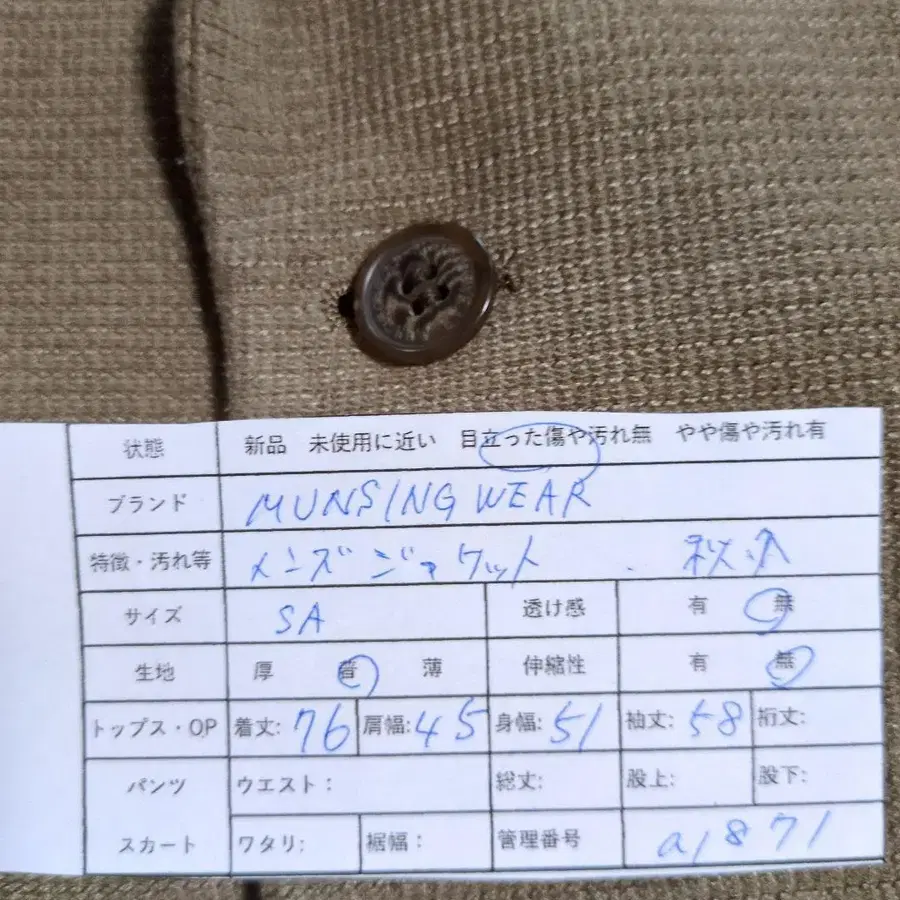 状態 新品 未使用に近い 目立った傷や汚れ無 やや傷や汚れ有
ブランド MUNSINGWEAR
特徴・汚れ等 メンズ ジャケット . 秋冬
サイズ SA 透け感 有 無
生地 厚 普 薄 伸縮性 有 無
トップス・OP 着丈: 76 肩幅: 45 身幅: 51 袖丈: 58 裄丈:
パンツ ウエスト: 総丈: 股上: 股下:
スカート ワタリ: 裾幅: 管理番号 a1871